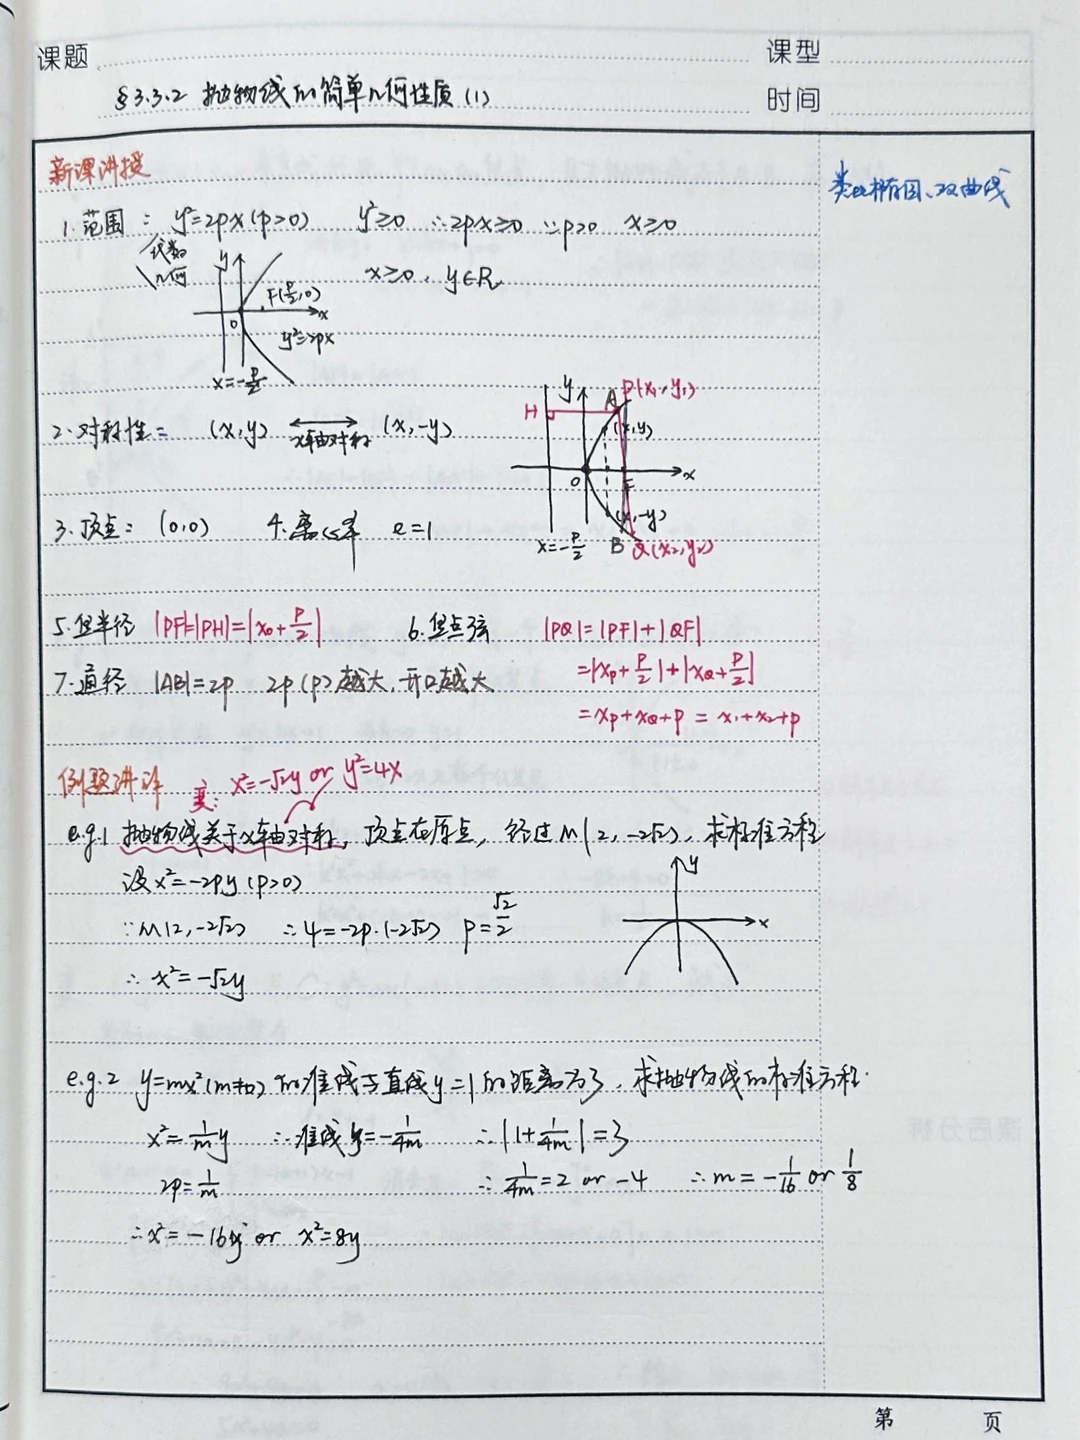 课题
课型
§3.3.2 抛物线的简单几何性质(1)
时间
新课讲授
类比椭圆、双曲线
1.范围: y²=2px(p>0) y²≥0 ∴2px≥0 ∵p>0 x≥0
代数
几何
x≥0, y∈R
y
F(p/2,0)
x
O
y²=2px
x=-p/2
2.对称性: (x,y) x轴对称 (x,-y)
H
y
A
P(x₁,y₁)
(x,y)
O
F
x
(x,-y)
x=-p/2
B
Q(x₂,y₂)
3.顶点: (0,0) 4.离心率 e=1
5.焦半径 |PF|=|PH|=|x₀+p/2| 6.焦点弦 |PQ|=|PF|+|QF|
=|xₚ+p/2|+|x_Q+p/2|
7.通径 |AB|=2p 2p(p)越大,开口越大
=xₚ+x_Q+p = x₁+x₂+p
例题讲评
变: x²=-√2y or y²=4x
e.g.1 抛物线关于x轴对称,顶点在原点,经过M(2,-2√2),求标准方程
设x²=-2py(p>0)
∵M(2,-2√2) ∴4=-2p·(-2√2) p=√2/2
∴x²=-√2y
y
x
e.g.2 y=mx²(m≠0)的准线与直线y=1的距离为3,求抛物线的标准方程.
x²=1/m y ∴准线y=-1/4m ∴|1+1/4m|=3
2p=1/m ∴1/4m=2 or -4 ∴m=-1/16 or 1/8
∴x²=-16y or x²=8y
第 页